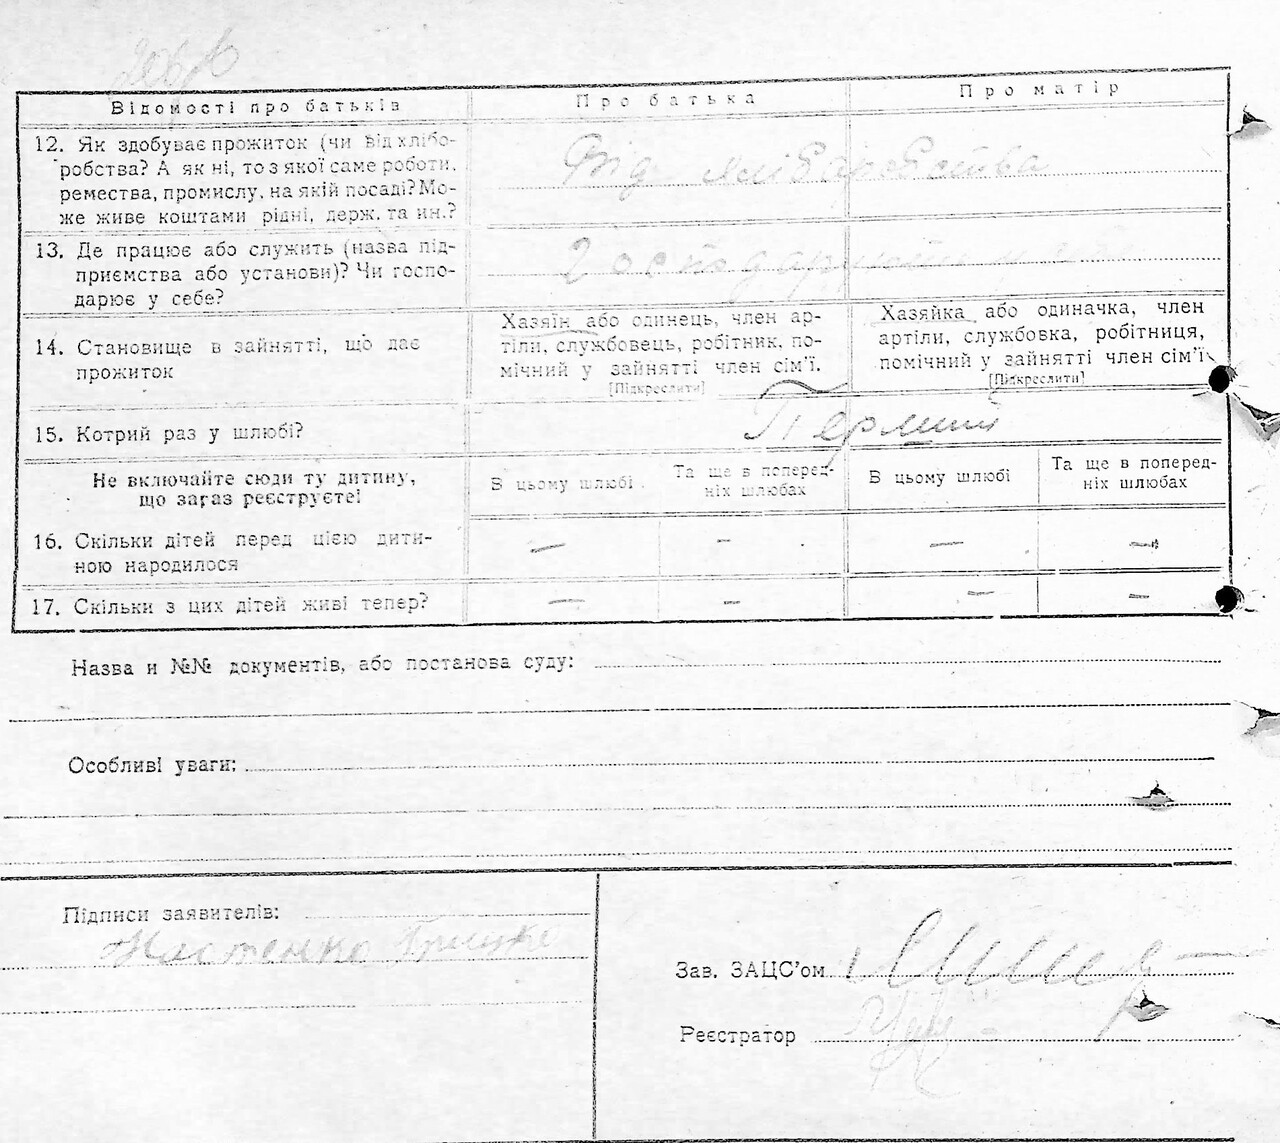 Відомості про батьків
Про батька
Про матір
12. Як здобуває прожиток (чи від хлібо-
робства? А як ні, то з якої саме роботи,
ремества, промислу, на якій посаді? Мо-
же живе коштами рідні, держ. та ин.?
Від хліборобства
13. Де працює або служить (назва під-
приємства або установи)? Чи госпо-
дарює у себе?
Господарюють у
14. Становище в зайнятті, що дає
прожиток
Хазяїн або одинець, член ар-
тіли, службовець, робітник, по-
мічний у зайнятті член сім'ї.
[Підкреслити]
Хазяйка або одиначка, член
артіли, службовка, робітниця,
помічний у зайнятті член сім'ї
[Підкреслити]
15. Котрий раз у шлюбі?
Перший
Не включайте сюди ту дитину,
що зараз реєструєте!
В цьому шлюбі
Та ще в поперед-
ніх шлюбах
В цьому шлюбі
Та ще в поперед-
ніх шлюбах
16. Скільки дітей перед цією дити-
ною народилося
— – — —
17. Скільки з цих дітей живі тепер?
— – — –
Назва и №№ документів, або постанова суду:
Особливі уваги:
Підписи заявителів:
Зав. ЗАЦС'ом
Реєстратор